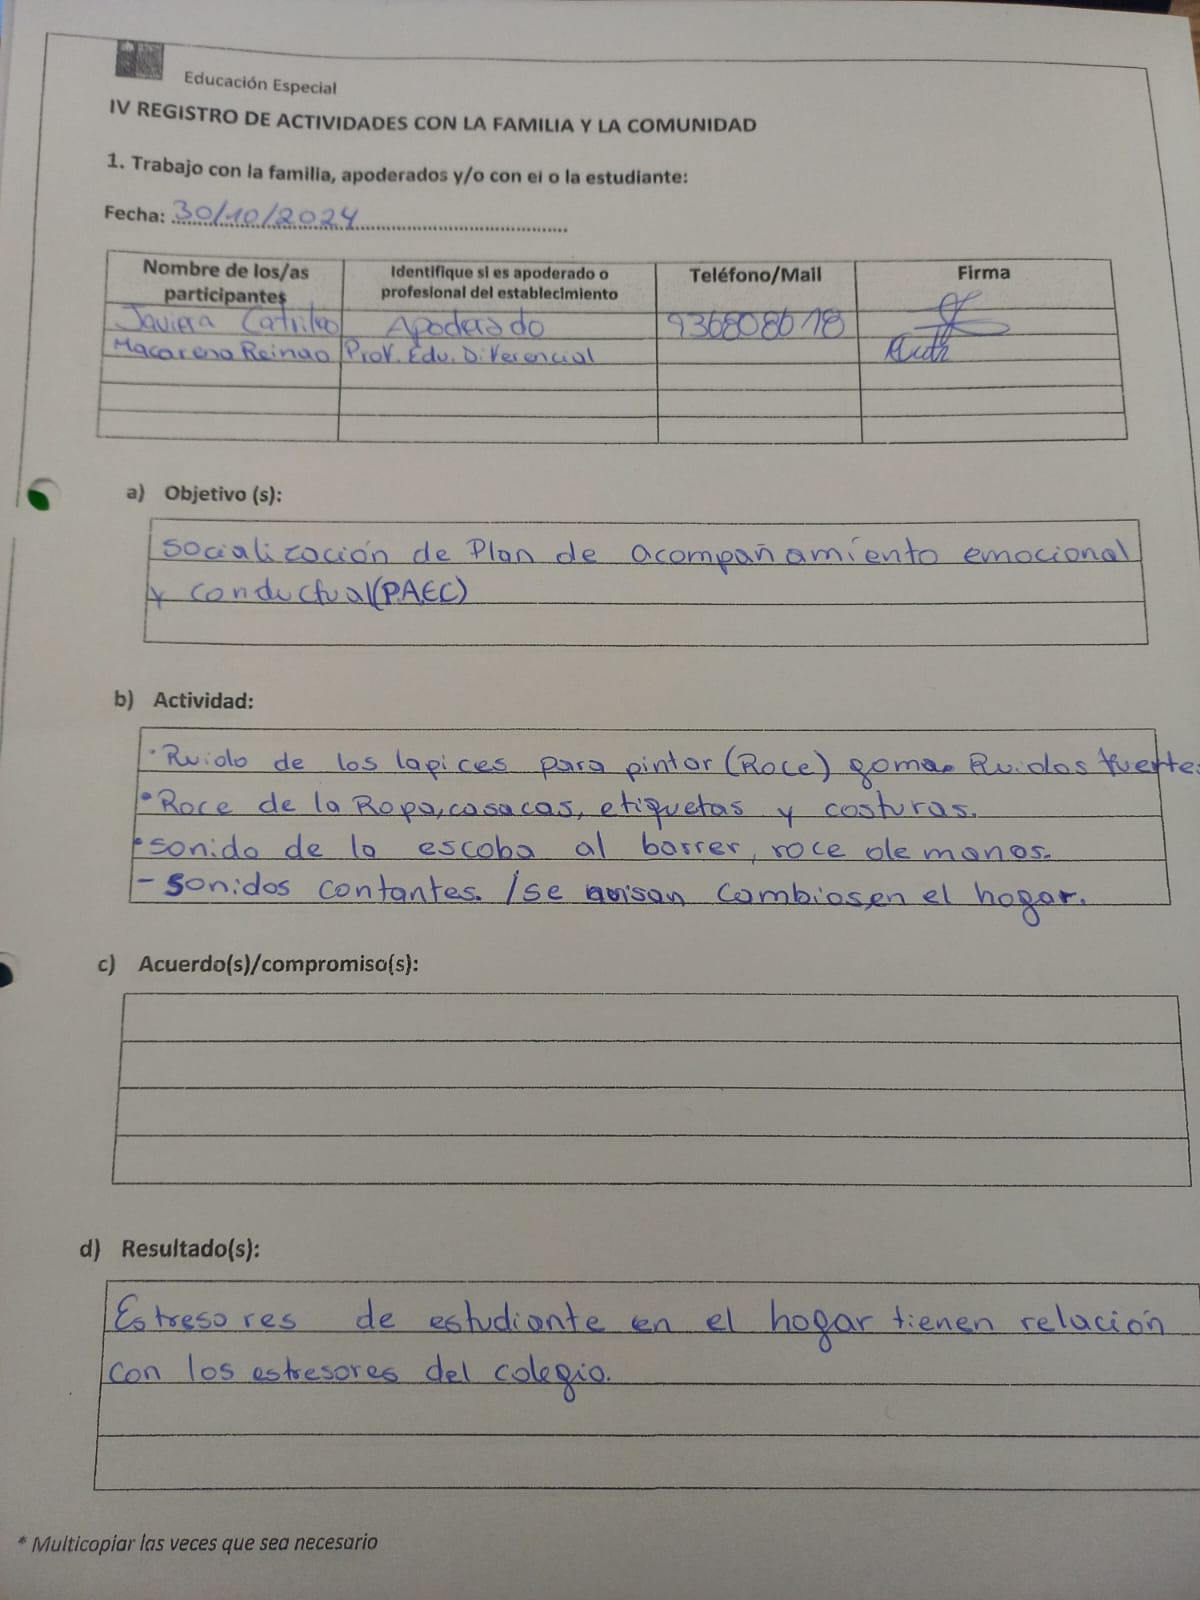 Educación Especial
IV REGISTRO DE ACTIVIDADES CON LA FAMILIA Y LA COMUNIDAD
1. Trabajo con la familia, apoderados y/o con el o la estudiante:
Fecha: 30/10/2024
Nombre de los/as participantes Identifique si es apoderado o profesional del establecimiento Teléfono/Mail Firma
Javiera Apoderado 936808618
Macarena Reinao Prof. Edu. Diferencial
a) Objetivo (s):
Socialización de Plan de acompañamiento emocional
y conductual (P.A.E.C)
b) Actividad:
• Ruido de los lapices para pintar (Roce) goma. Ruidos fuertes
• Roce de la Ropa, casacas, etiquetas y costuras.
• sonido de la escoba al barrer, roce de manos.
- Sonidos contantes. / se avisan cambios, en el hogar.
c) Acuerdo(s)/compromiso(s):
d) Resultado(s):
Estresores de estudiante en el hogar tienen relación
con los estresores del colegio.
* Multicopiar las veces que sea necesario